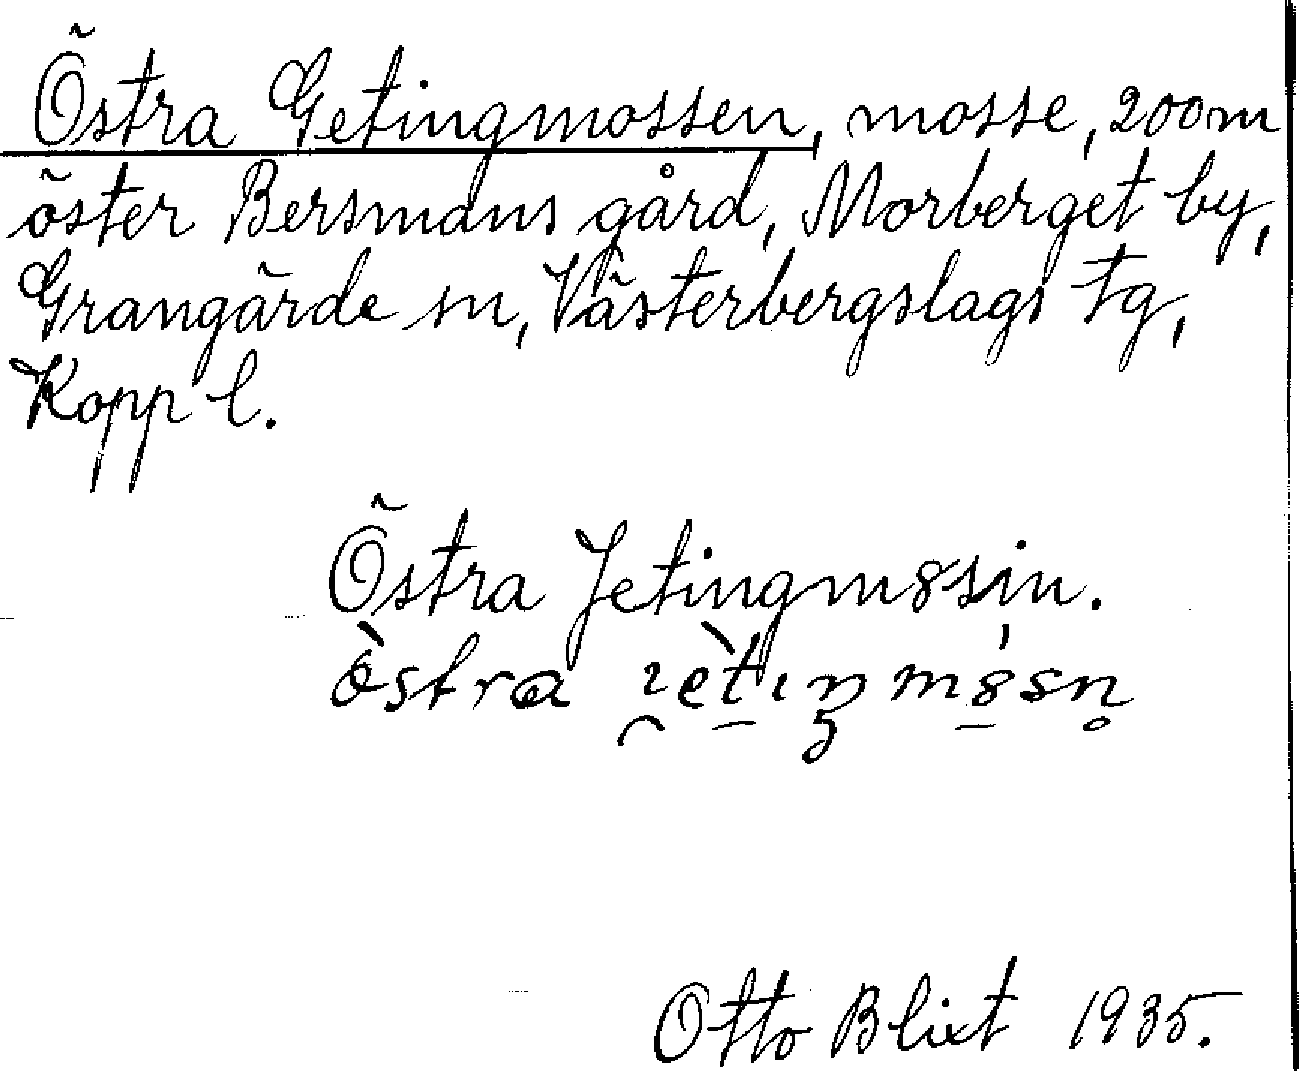 Östra Getingmossen, mosse, 200 m
öster Bersmans gård, Morberget by,
Grangärde sn, Västerbergslags tg,
Kopp l.
Östra Jetingm8sin.
Otto Blixt 1935.